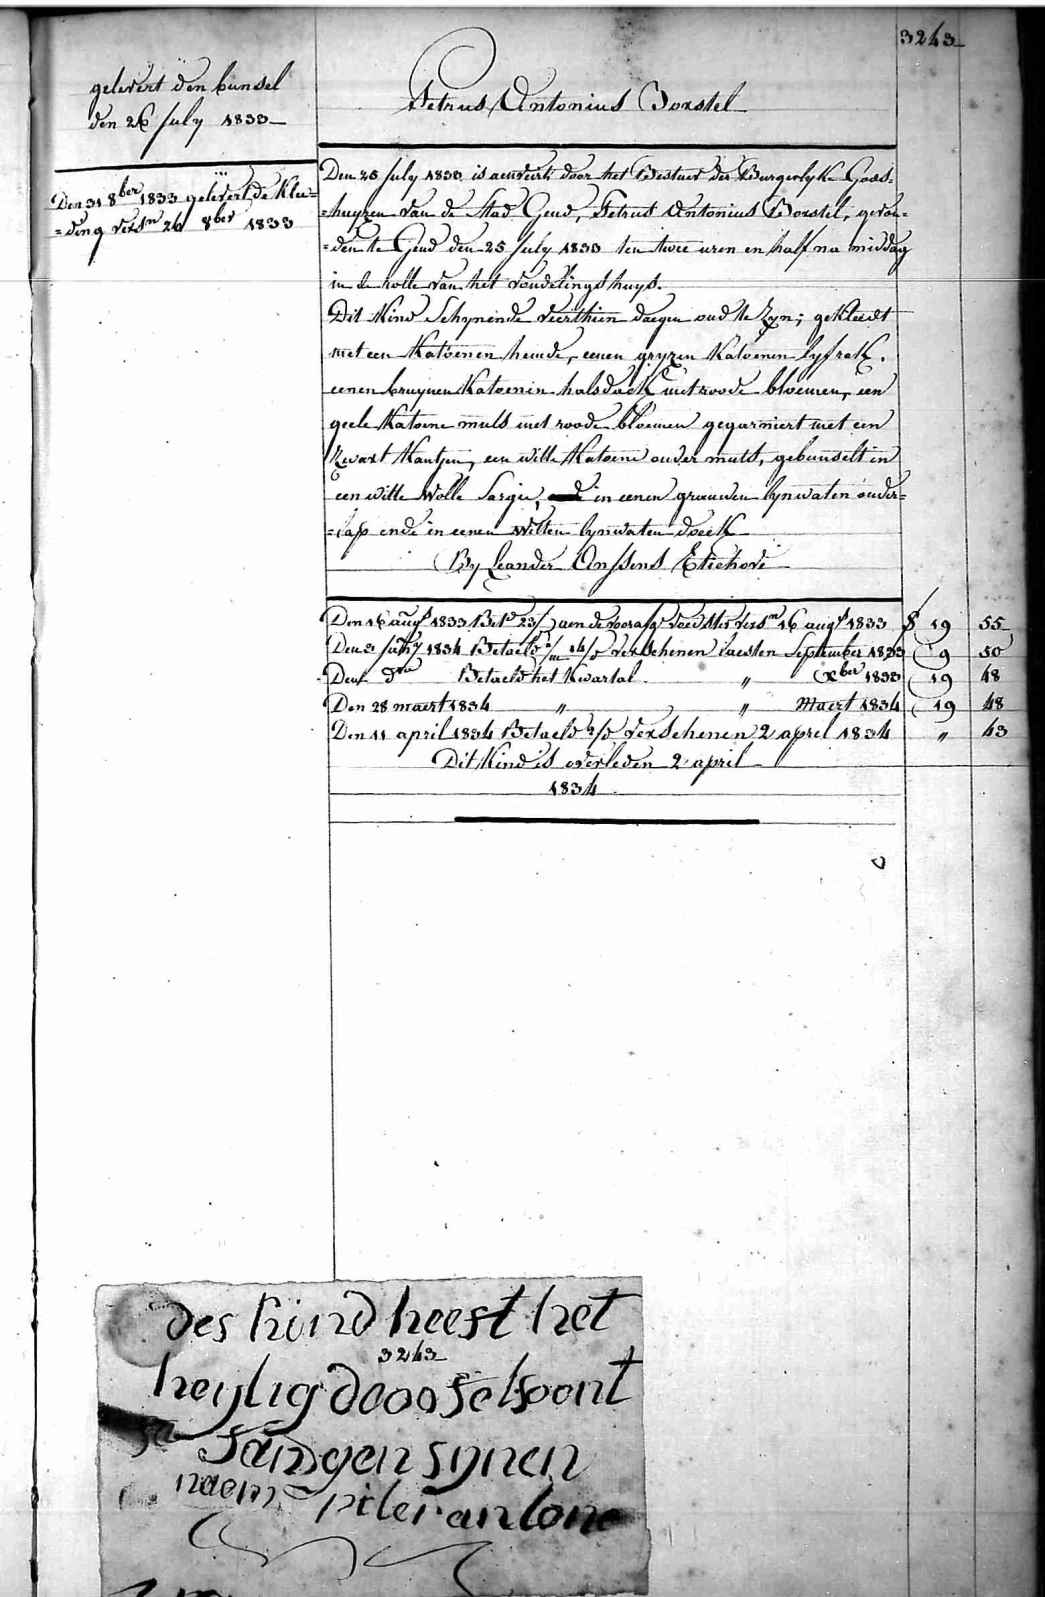 3243
gelevert den bunsel
den 26 July 1833
Petrus Antonius Borstel
Den 31 8ber 1833 gelevert de klee=
=ding versn 26 8ber 1833
Den 25 July 1833 is aenveirt door het Bestuer der Burgerlyke Gods=
=huyzen van de Stad Gend, Petrus Antonius Borstel, gevon=
=den te Gend den 25 July 1833 ten twee uren en half na middag
in de rolle van het vondelingshuys.
Dit Kind Schynende veerthien daegen oud te zyn; gekleedt
met een Katoenen hemde, eenen gryzen Katoenen lyfrok.
eenen bruynen Katoenen halsdoek met roode bloemen, een
geele Katoene muts met roode bloemen gegarniert met een
zwart Kantjen, een witte Katoene onder muts, gebunselt in
een witte Wolle Sargie, in eenen grauwen lynwaten onder=
=lap ende in eenen witten lynwaten doek
By Leander Anssens Etichove
Den 16 augt 1833 Betd aen de voorafg versm 16 augt 1833 19 55
Den 31 1834 Betaeld verschenen laesten September 1833 9 50
Den dto Betaeld het Kwartal " Xber 1833 19 48
Den 28 maert 1834 " " Maert 1834 19 48
Den 11 april 1834 Betaeld verschenen 2 april 1834 " 43
Dit Kind is overleden 2 april
1834
des kind heeft het
3243
heylig doosel
fangen synen
naem piter antone